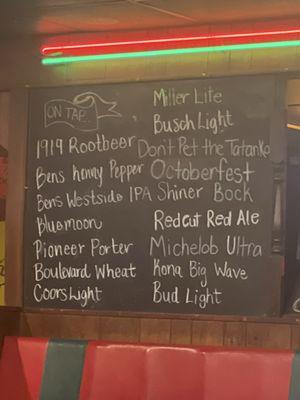 ON TAP
1919 Rootbeer
Bens honny Pepper
Bens Westside IPA
Bluemoon
Pioneer Porter
Boulevard Wheat
Coors Light
Miller Lite
Busch Light
Don't Pet the Tatanka
Octoberfest
Shiner Bock
Redcut Red Ale
Michelob Ultra
Kona Big Wave
Bud Light